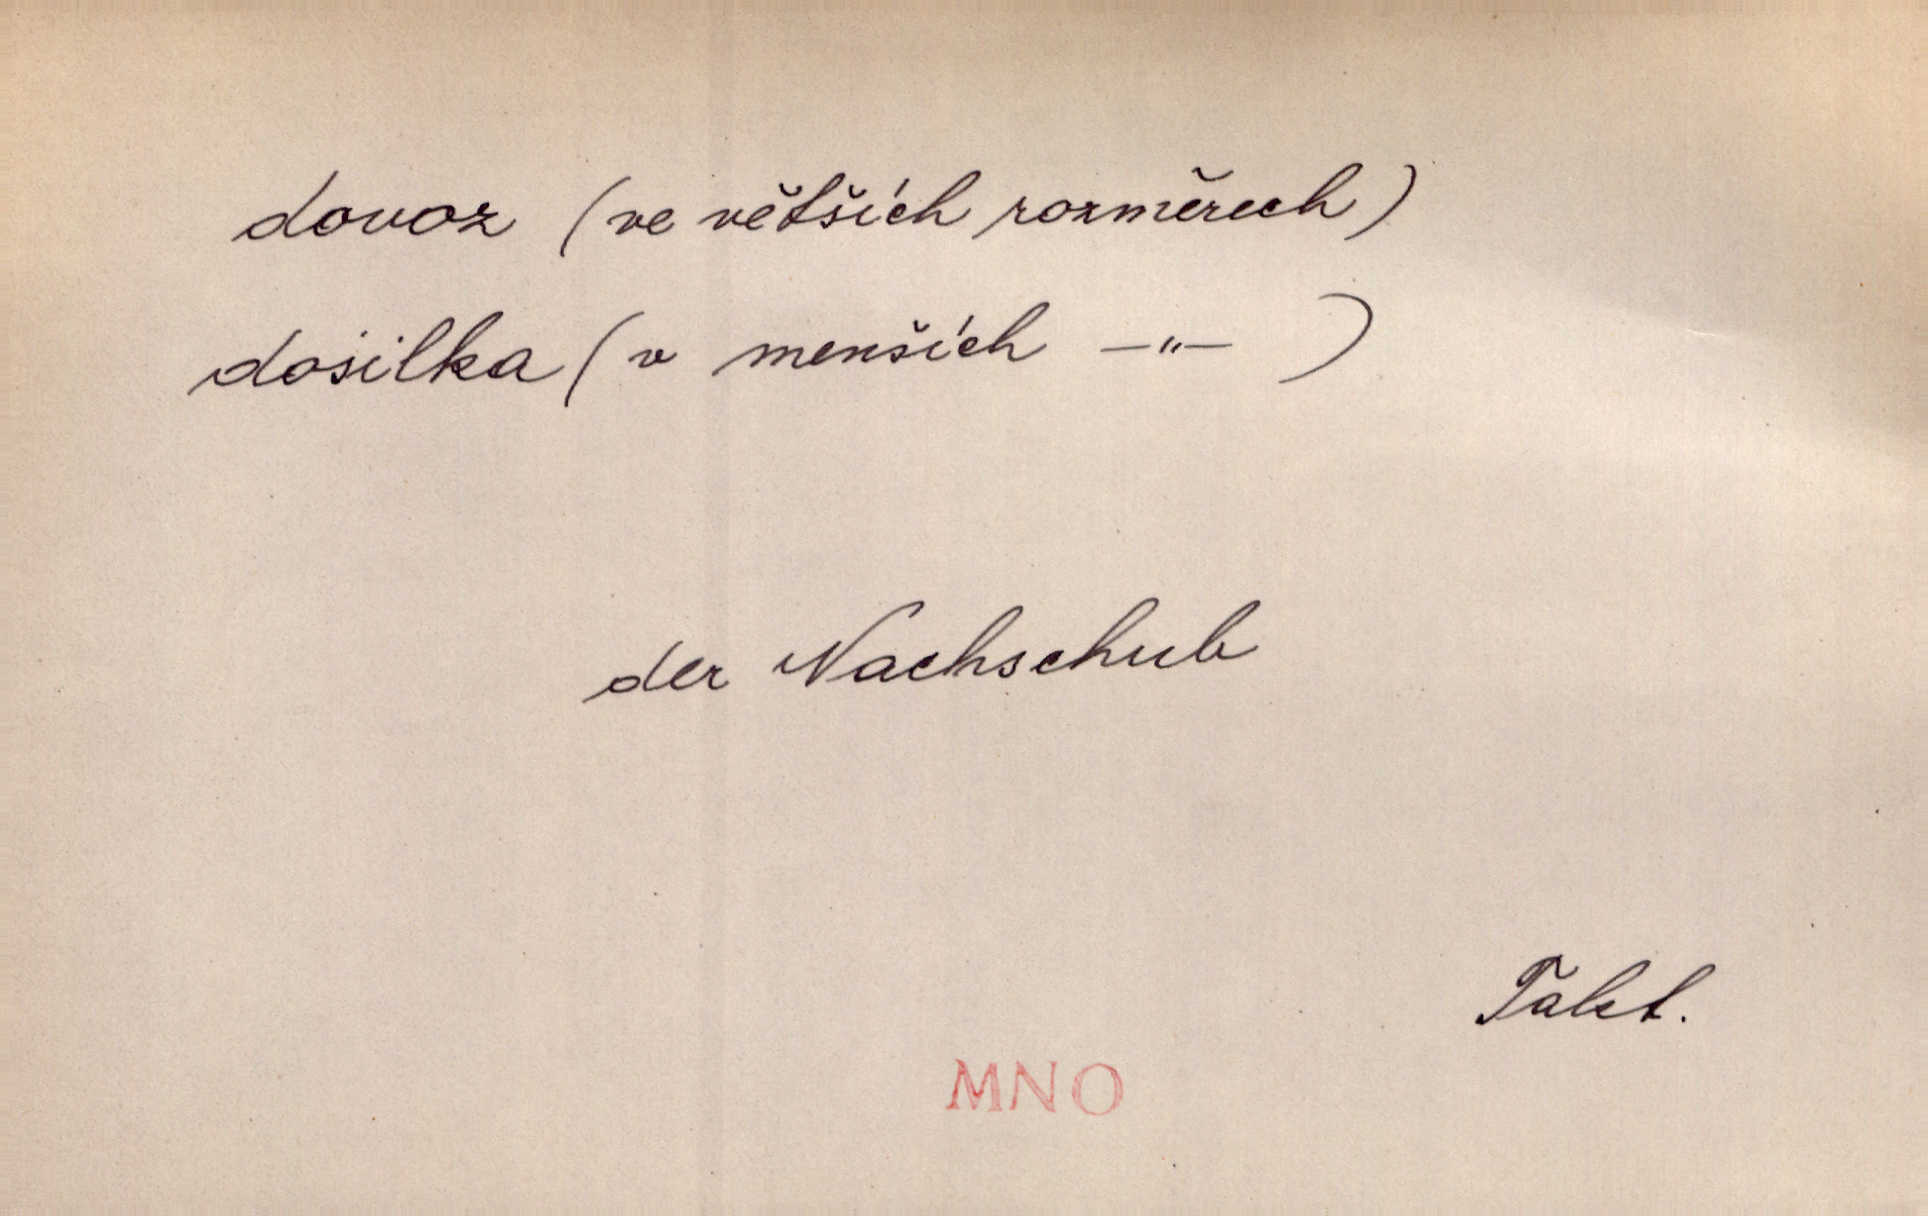 dovoz (ve větších rozměrech)
dosilka (v menších —"— )
der Nachschub
Takt.
MNO